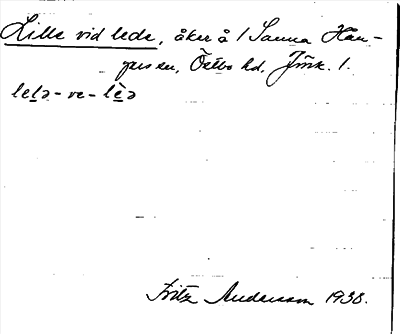 Lille vid lede, åker å 1 Sanna Hån-
ger sn, Östbo hd, Jönk. l.
lelə - ve - lèə
Fritz Andersson 1938.